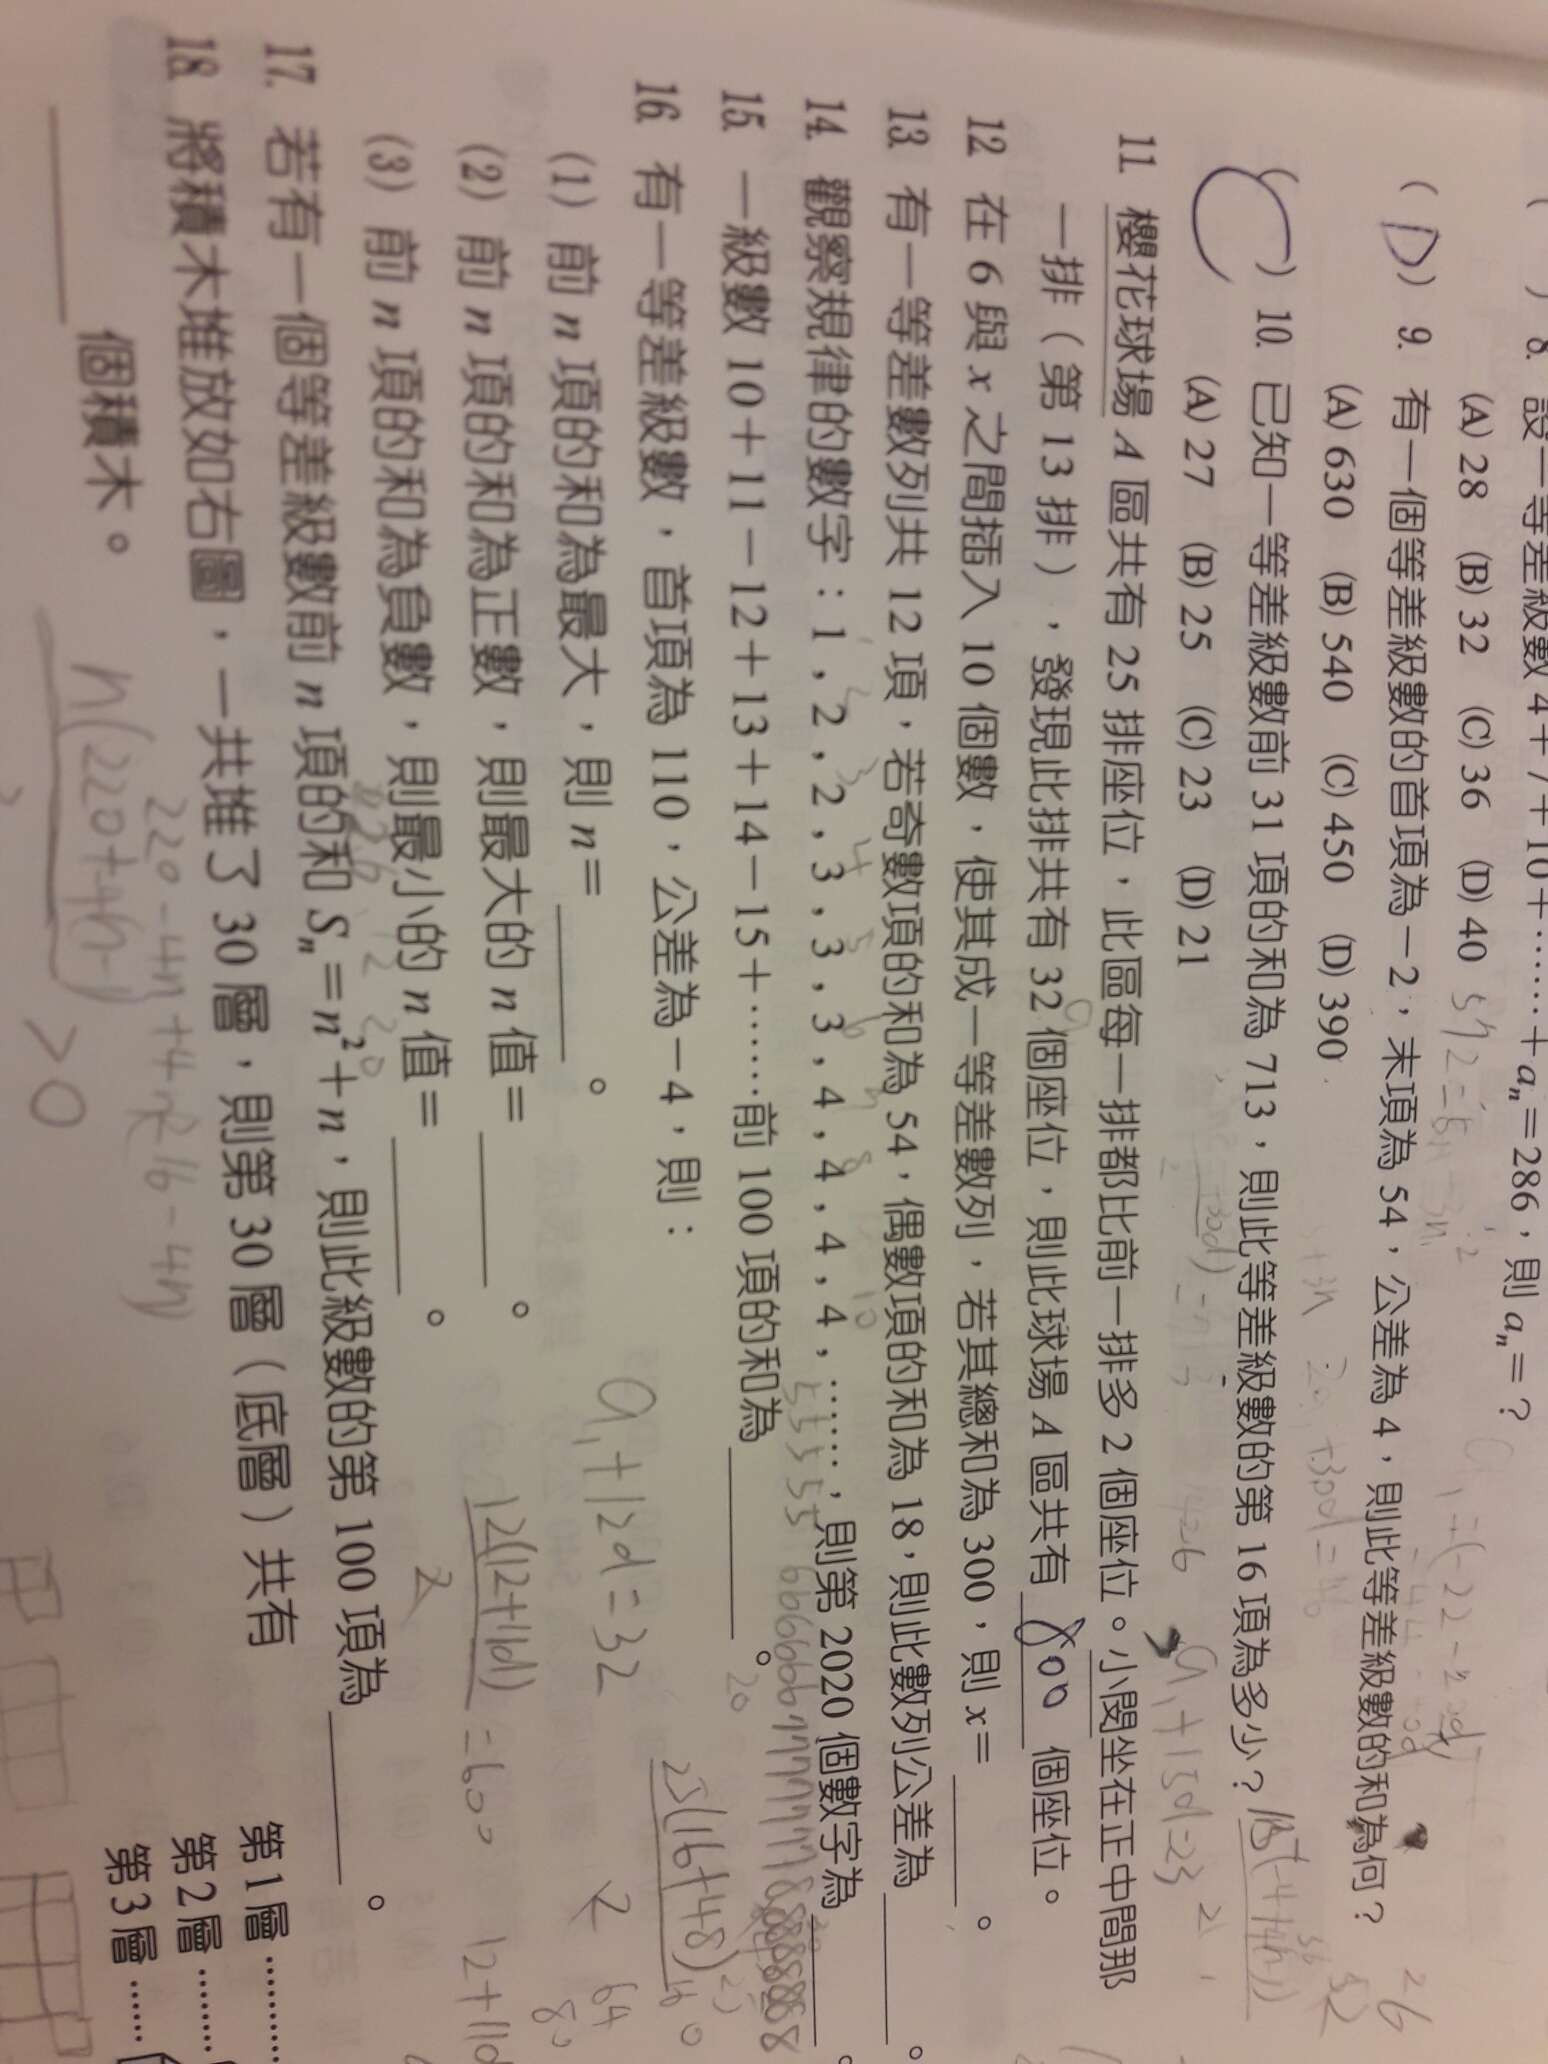 ( ) 8. 設一等差級數 4＋7＋10＋……＋aₙ＝286，則 aₙ＝？
(A) 28 (B) 32 (C) 36 (D) 40
( D ) 9. 有一個等差級數的首項為－2，末項為 54，公差為 4，則此等差級數的和為何？
(A) 630 (B) 540 (C) 450 (D) 390
( C ) 10. 已知一等差級數前 31 項的和為 713，則此等差級數的第 16 項為多少？
(A) 27 (B) 25 (C) 23 (D) 21
a₁+15d=23
11. 櫻花球場 A 區共有 25 排座位，此區每一排都比前一排多 2 個座位。小閔坐在正中間那
一排（第 13 排），發現此排共有 32 個座位，則此球場 A 區共有 800 個座位。
12. 在 6 與 x 之間插入 10 個數，使其成一等差數列，若其總和為 300，則 x＝。
13. 有一等差數列共 12 項，若奇數項的和為 54，偶數項的和為 18，則此數列公差為。
14. 觀察規律的數字：1，2，2，3，3，3，4，4，4，4，……，則第 2020 個數字為。
15. 一級數 10＋11－12＋13＋14－15＋……前 100 項的和為。
16. 有一等差級數，首項為 110，公差為－4，則：
(1) 前 n 項的和為最大，則 n＝。
(2) 前 n 項的和為正數，則最大的 n 值＝。
(3) 前 n 項的和為負數，則最小的 n 值＝。
a₁+12d=32
25(16+48)
2
12(12+11d)
2
=600
12+11d
17. 若有一個等差級數前 n 項的和 Sₙ＝n²＋n，則此級數的第 100 項為。
18. 將積木堆放如右圖，一共堆了 30 層，則第 30 層（底層）共有
個積木。
第 1 層
第 2 層
第 3 層
n(220+4(n-1)
>0